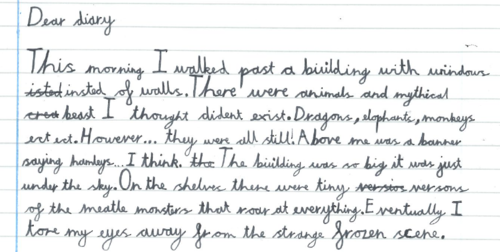 Dear diary
This morning I walked past a building with windows
insted of walls. There were animals and mythical
beast I thought dident exist. Dragons, elophants, monkeys
ect ect. However... they were all still! Above me was a banner
saying hamleys... I think. The building was so big it was just
under the sky. On the shelves there were tiny versons
of the meatle monsters that roar at everything. Eventually I
tore my eyes away from the strange frozen scene.